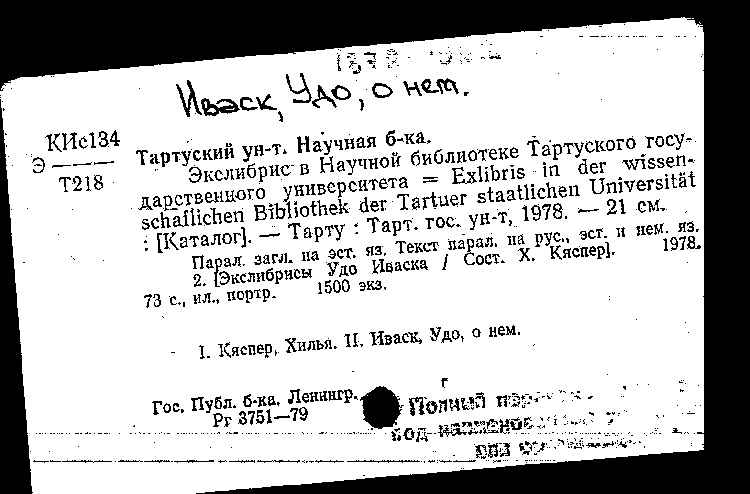 Иваск, Удо, о нем.
КИс134
Э
Т218
Тартуский ун-т. Научная б-ка.
Экслибрис в Научной библиотеке Тартуского госу-
дарственного университета = Exlibris in der wissen-
schaflichen Bibliothek der Tartuer staatlichen Universität
: [Каталог]. — Тарту : Тарт. гос. ун-т, 1978. — 21 см.
Парал. загл. на эст. яз. Текст парал. на рус., эст. и нем. яз.
2. [Экслибрисы Удо Иваска / Сост. Х. Кяспер]. 1978.
73 с., ил., портр. 1500 экз.
I. Кяспер, Хилья. II. Иваск, Удо, о нем.
Гос. Публ. б-ка. Ленингр.
Рг 3751—79
Полный
под